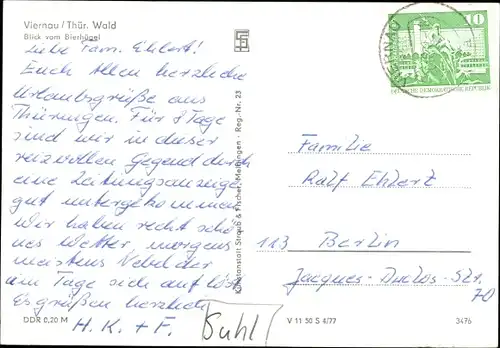 Viernau / Thür. Wald
Blick vom Bierhügel
Liebe Fam. Ehlert!
Euch Allen herzliche
Urlaubsgrüße aus
Thüringen. Für 8 Tage
sind wir in dieser
reizvollen Gegend durch
eine Zeitungsanzeige
gut untergekommen.
Wir haben recht schö-
nes Wetter, morgens
meistens Nebel der
am Tage sich auflöst.
Es grüßen herzlich
H. K. + F.
Suhl
DDR 0,20 M
Kunstanstalt Straub & Fischer, Meiningen - Reg.-Nr. 23
VIERNAU
10
DEUTSCHE DEMOKRATISCHE REPUBLIK
Familie
Ralf Ehlert
113 Berlin
Jacques-Duclos-Str.
70
V 11 50 S 4/77
3476